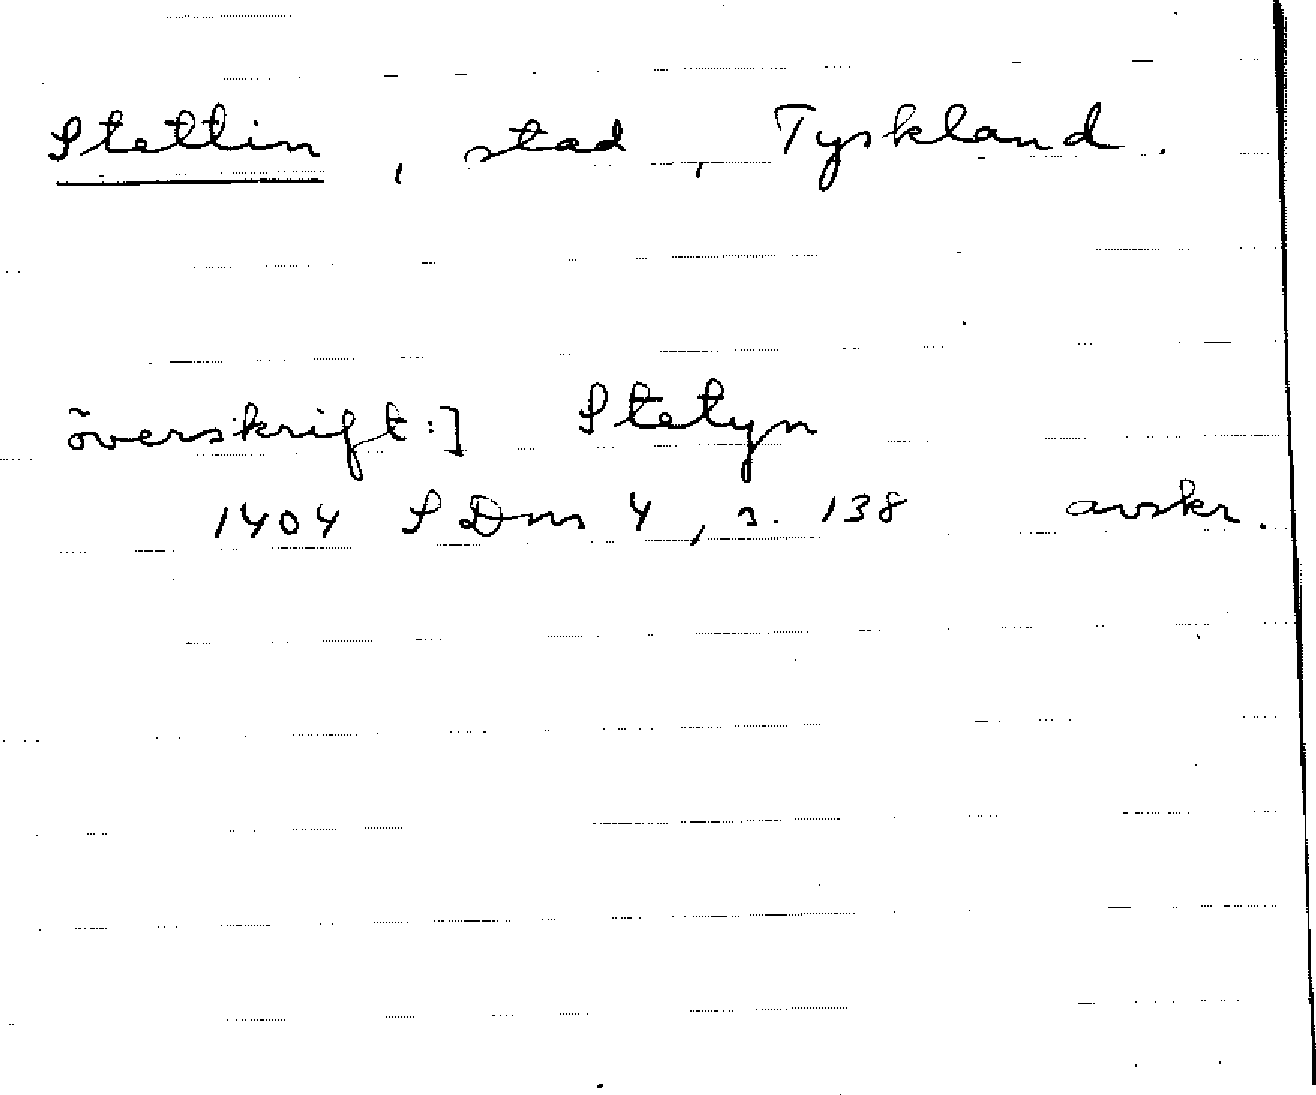 Stettin, stad, Tyskland.
överskrift:] Stetyn
1404 SDns 4, s. 138 avskr.